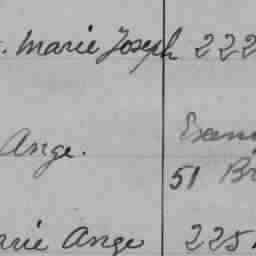 . Marie Joseph 222
Ange.
51 Br
arie Ange 225